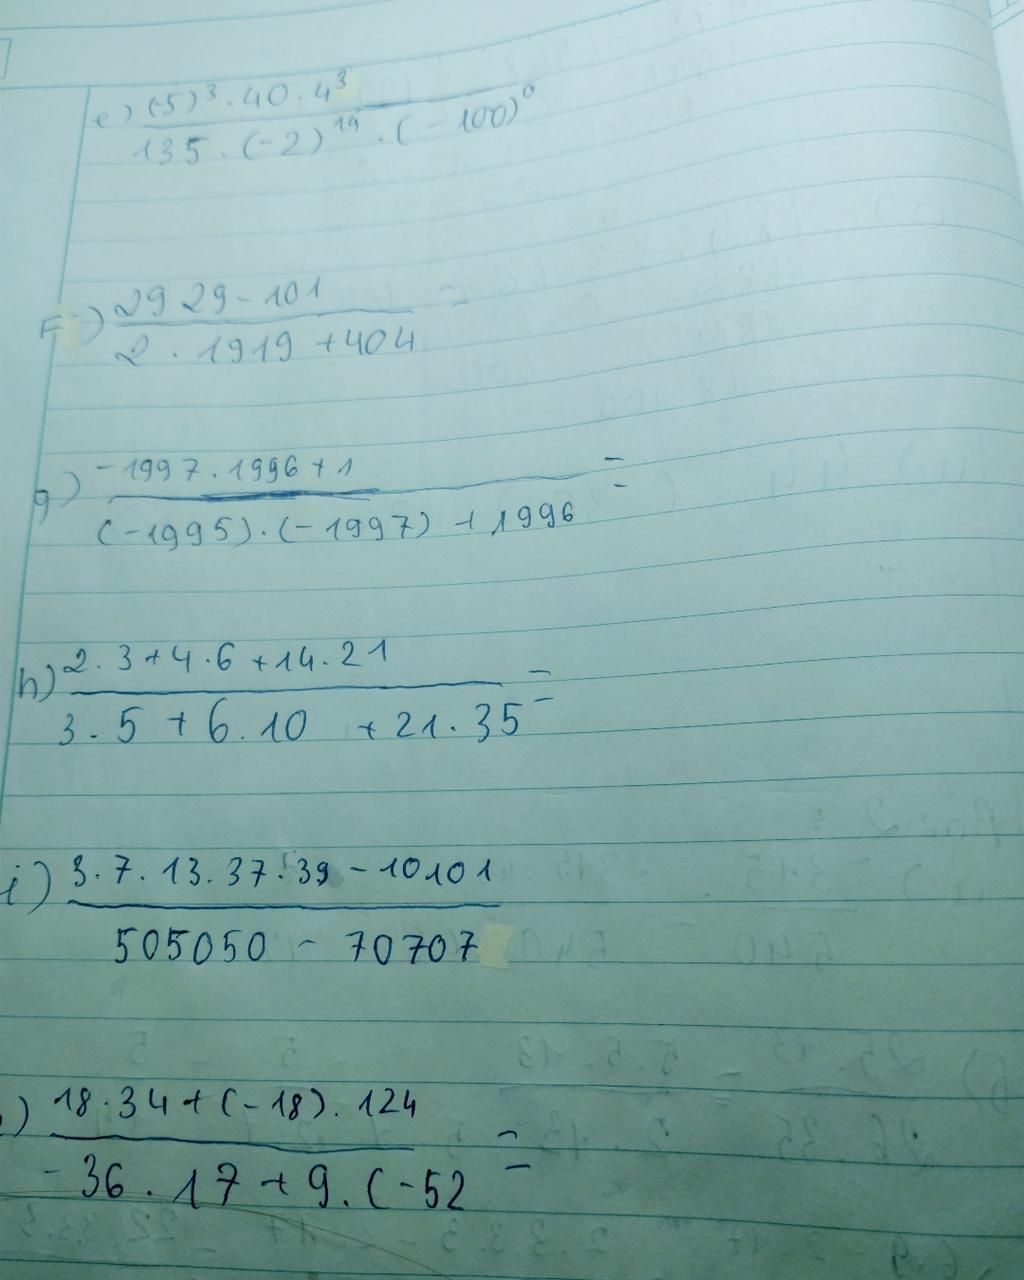 e) (-5)³.40.4³
135.(-2)¹⁴.(-100)⁰
F) 2929-101 =
2.1919+404
g) -1997.1996+1 =
(-1995).(-1997)+1996
h) 2.3+4.6+14.21 =
3.5+6.10+21.35
i) 3.7.13.37.39-10101
505050-70707
) 18.34+(-18).124 =
-36.17+9.(-52